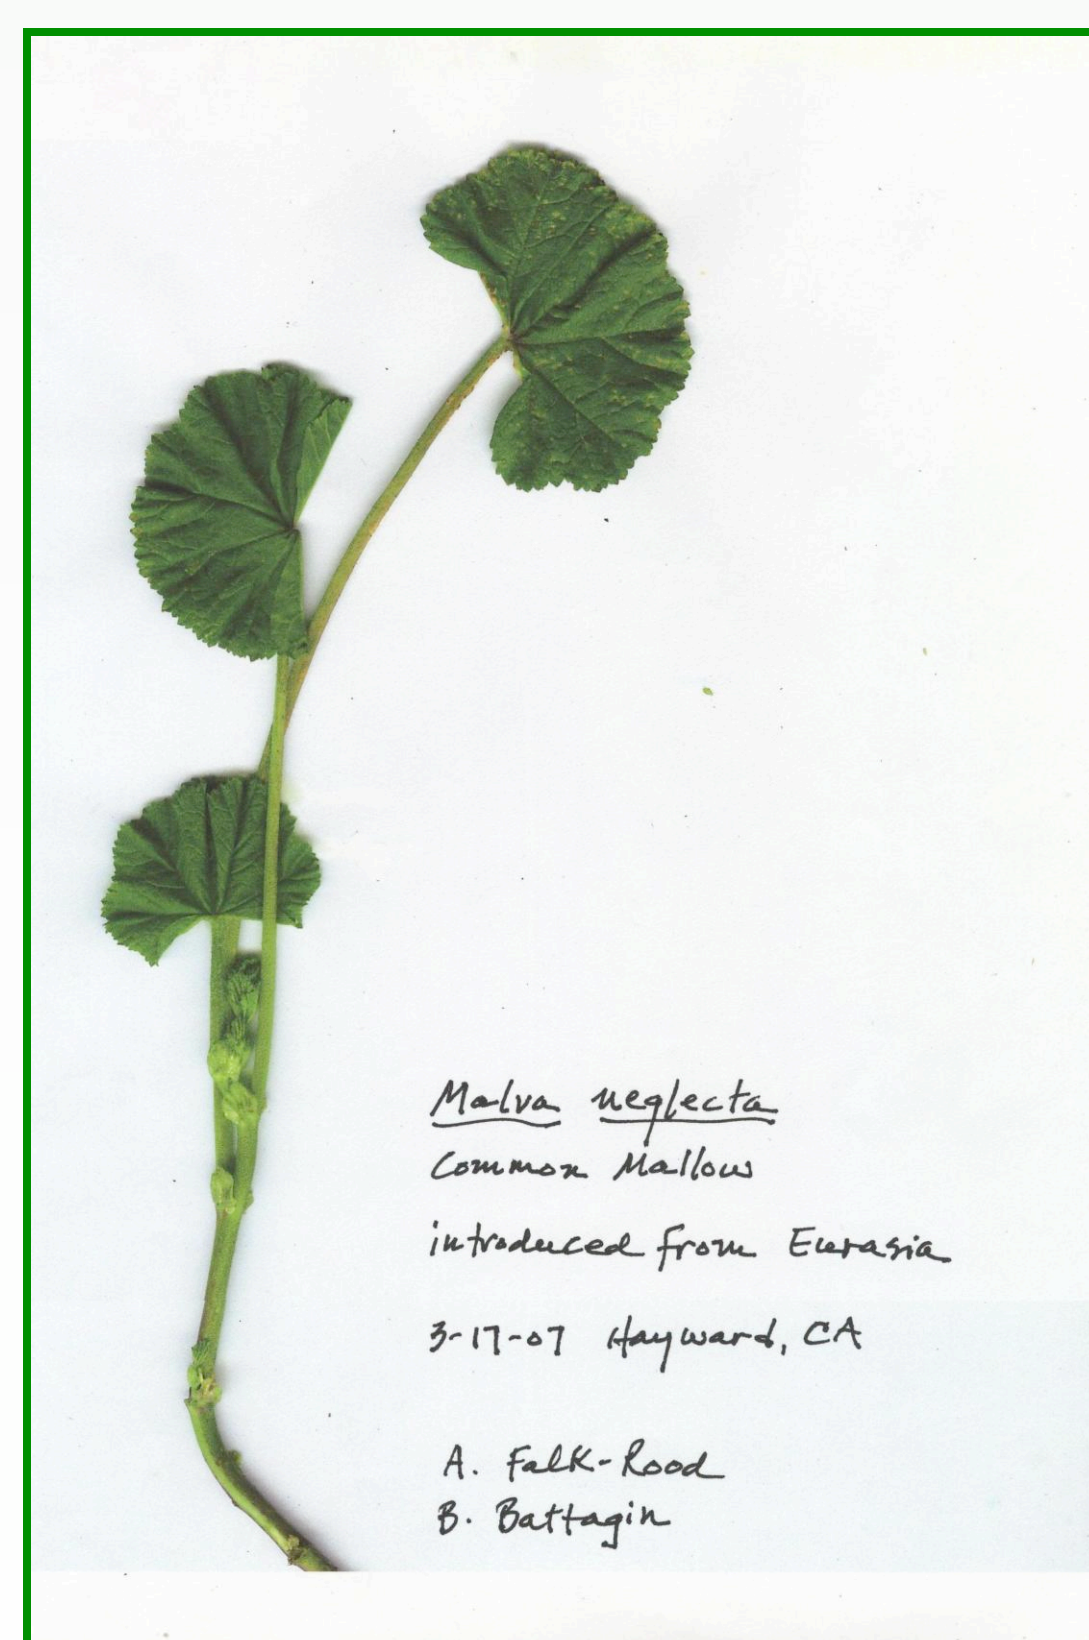 Malva neglecta
Common Mallow
introduced from Eurasia
3-17-07 Hayward, CA
A. Falk-Rood
B. Battagin